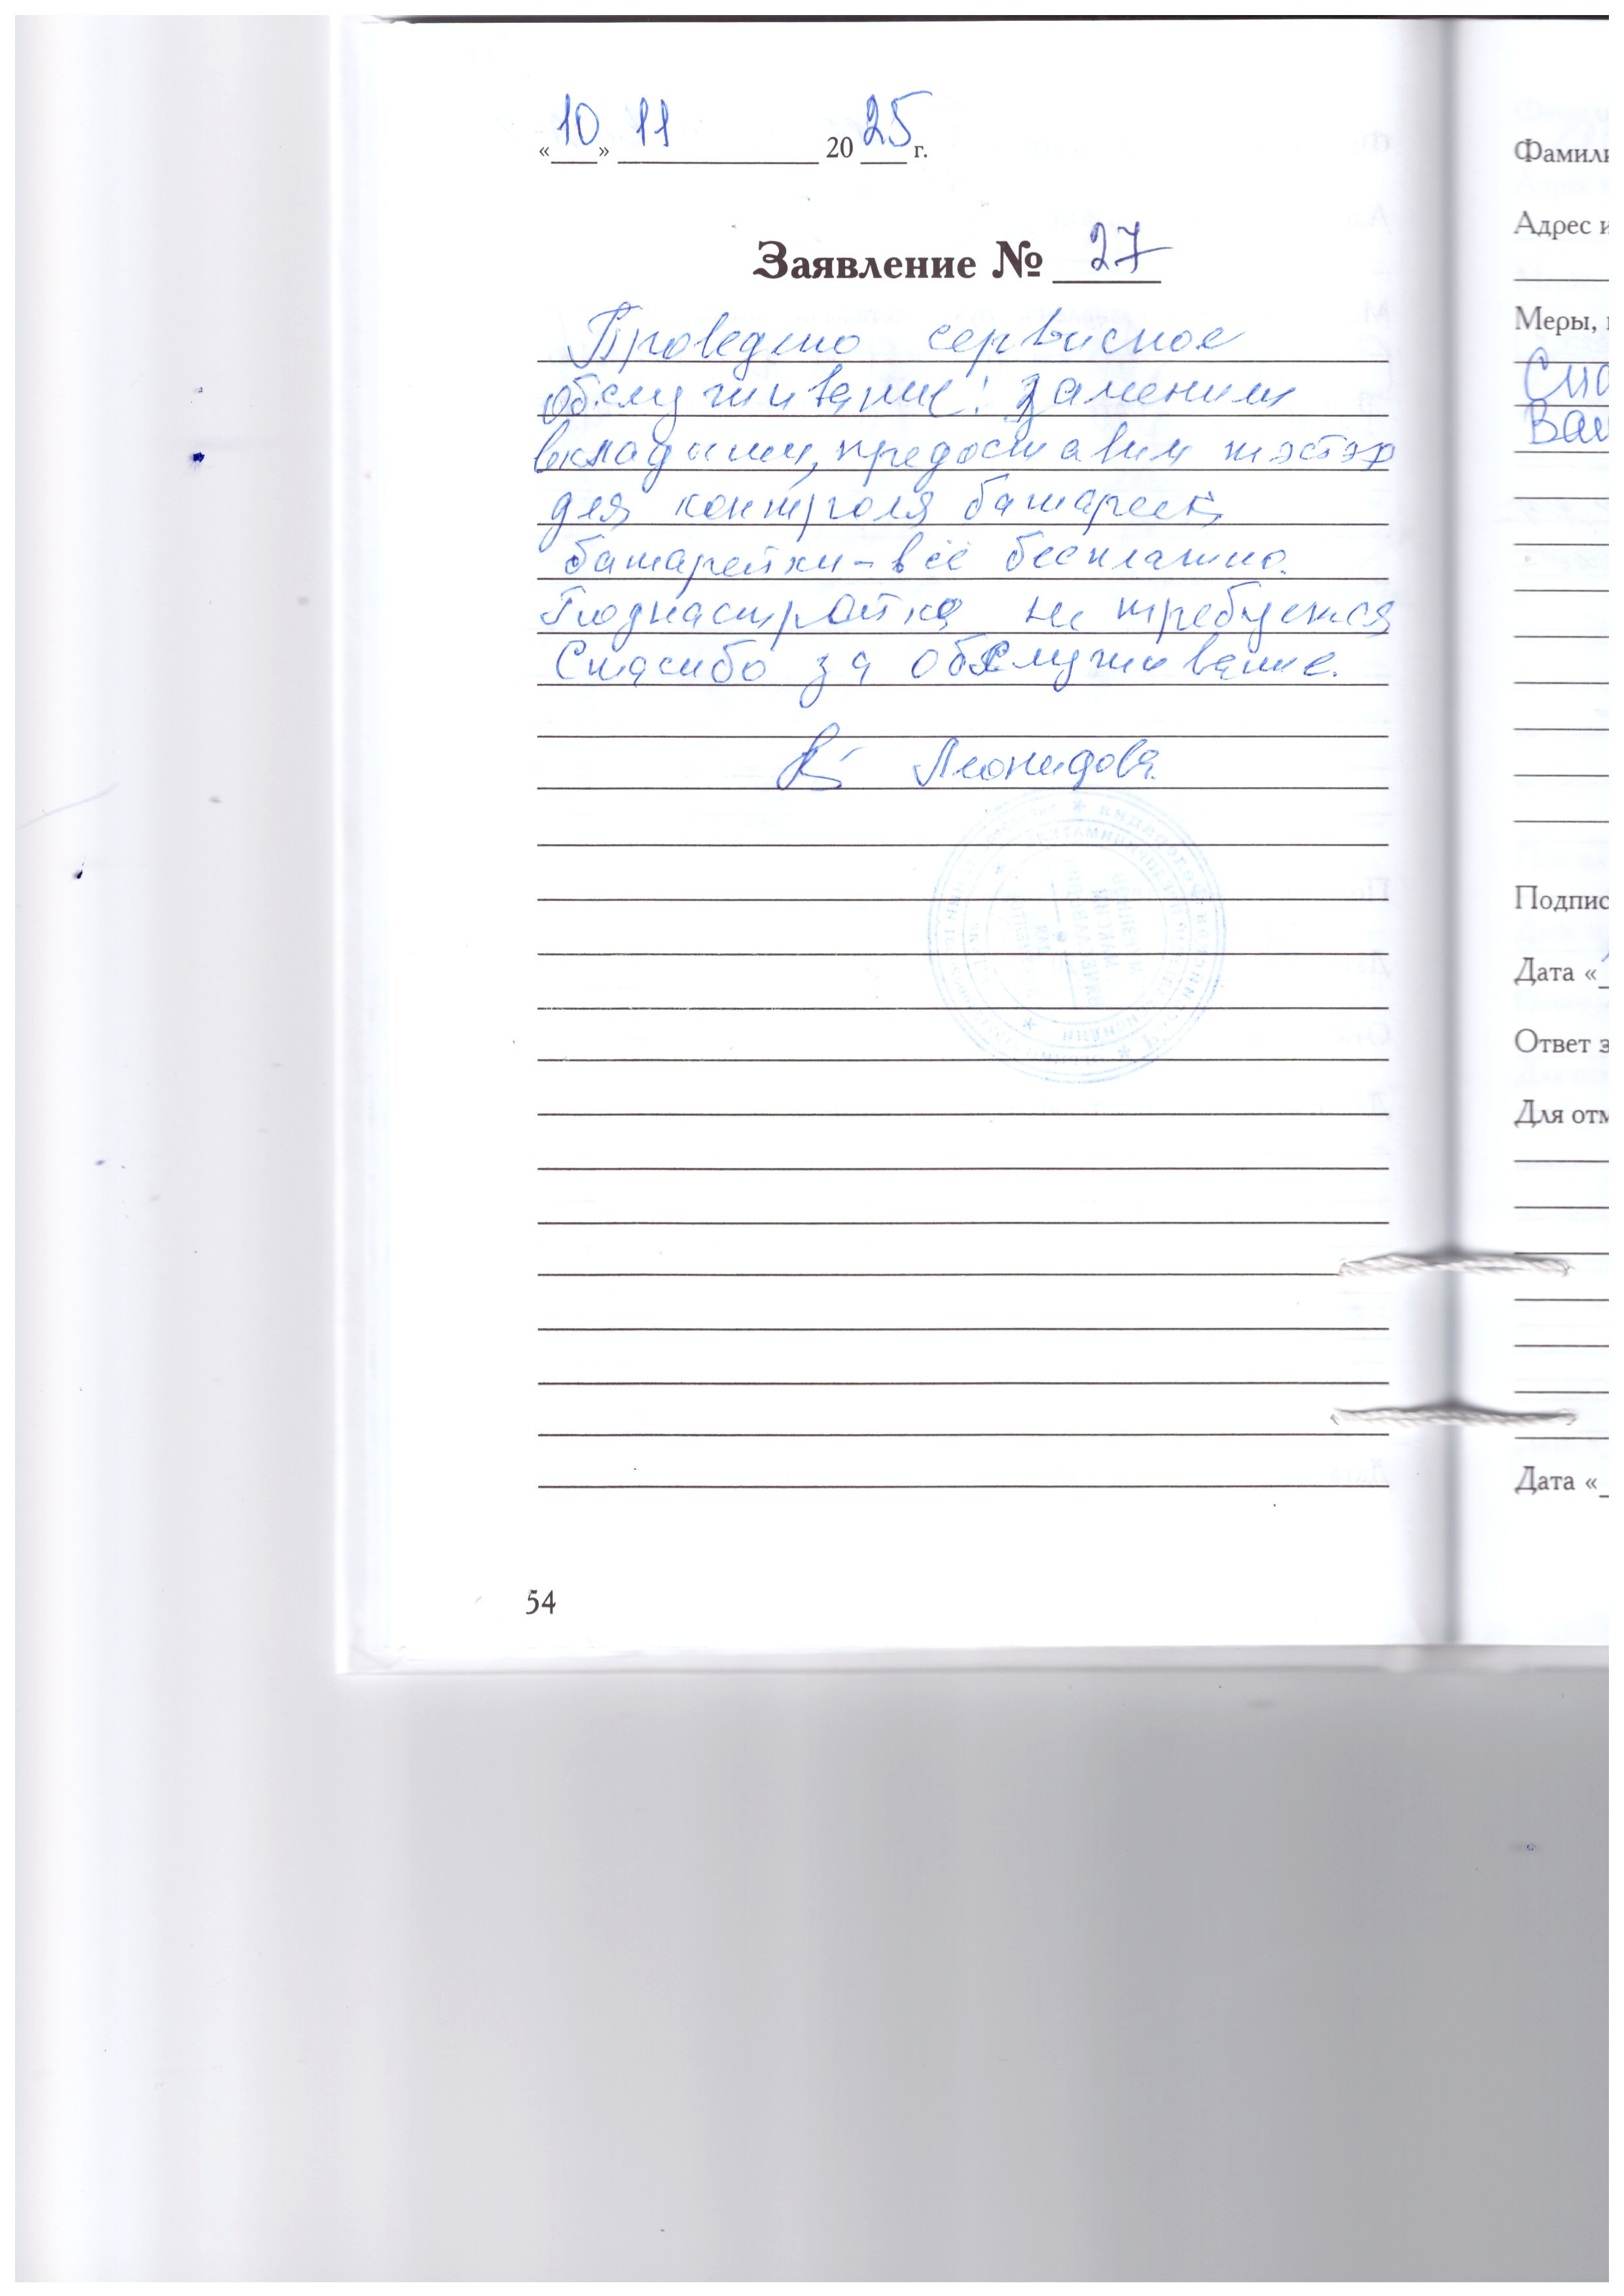 «10» 11 2025 г.
Заявление № 27
Проведено сервисное
обслуживание: заменили
вкладыши, предоставили тэстэр
для контроля батареек,
батарейки - всё бесплатно.
Поднастройка не требуется
Спасибо за обслуживание.
Леонидова
54
Фамили
Адрес и
Меры,
Спа
Ваш
Подпис
Дата «
Ответ з
Для отм
Дата «